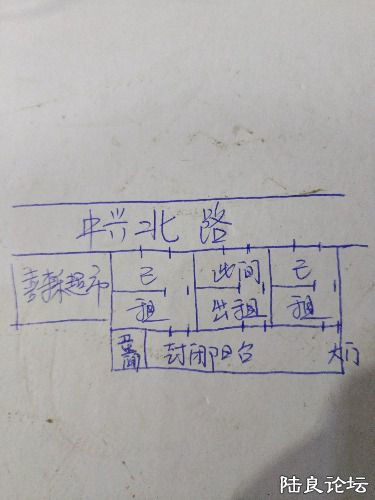 中兴北路
喜霖超市
已租
此间出租
已租
卫生间
封闭阳台
大门
陆良论坛